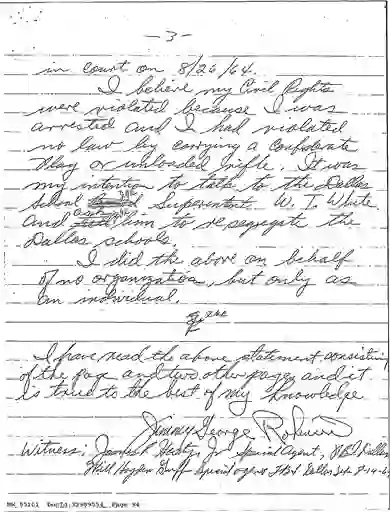 - 3 -
in court on 8/26/64.
I believe my Civil Rights
were violated because I was
arrested and I had violated
no law by carrying a Confederate
Flag or unloaded rifle. It was
my intention to talk to the Dallas
School Superintent W. T. White
and ask him to resegregate the
Dallas schools.
I did the above on behalf
of no organization, but only as
an individual.
I have read the above statement consisting
of this page and two other pages and it
is true to the best of my knowledge
Jimmy George Robinson
Witness: Hasty, Jr. Special Agent, FBI Dallas
Will Hayden Griffin Special Agent FBI Dallas
NW 55201 DocId:32989554 Page 94